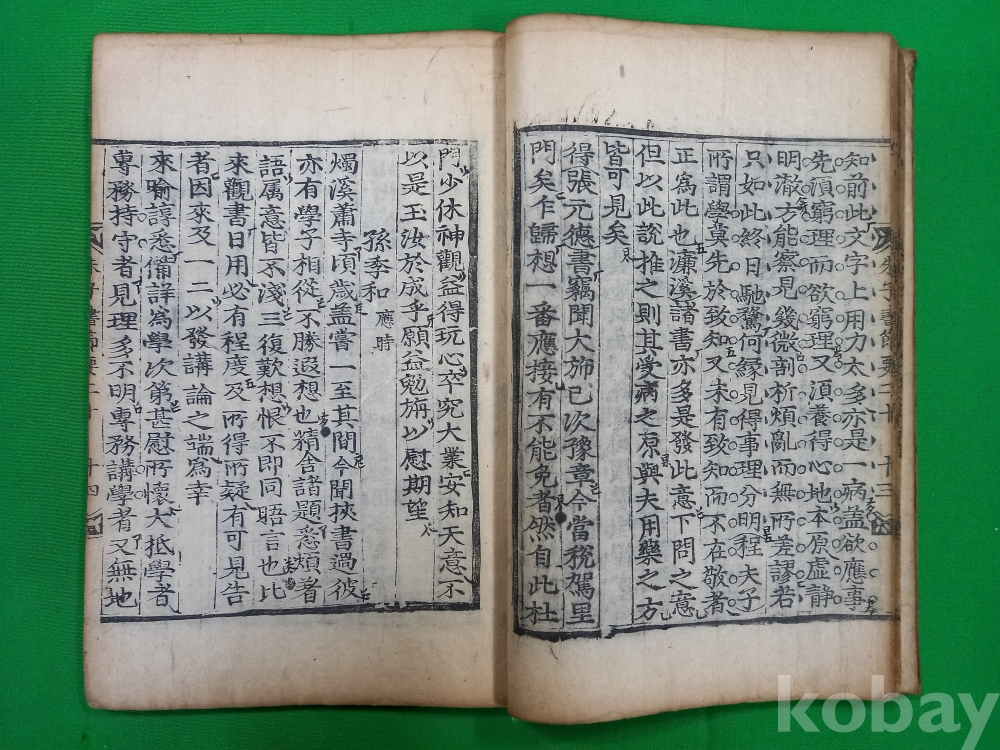 知前此文字上用力太多亦是一病蓋欲應事
先須窮理而欲窮理又須養得心地本原虛靜
明澈方能察見幾微剖析煩亂而無所差謬若
只如此終日馳騖何緣見得事理分明程夫子
所謂學莫先於致知又未有致知而不在敬者
正爲此也濂溪諸書亦多是發此意下問之意
但以此說推之則其受病之原與夫用藥之方
皆可見矣
得張元德書竊聞大旆已次豫章今當稅駕里
門矣乍歸想一番應接有不能免者然自此杜
朱子書節要二十 十三
門少休神觀益得玩心卒究大業安知天意不
以是玉汝於成乎願益勉旃以慰期望
孫季和 應時
燭溪蕭寺頃歲蓋嘗一至其間今聞挾書過彼
亦有學子相從不勝遐想也精舍諸題悉煩著
語屬意皆不淺三復歎想恨不即同晤言也比
來觀書日用必有程度及所得所疑有可見告
者因來及一二以發講論之端爲幸
來喻諄悉備詳爲學次第甚慰所懷大抵學者
專務持守者見理多不明專務講學者又無地
十四
kobay